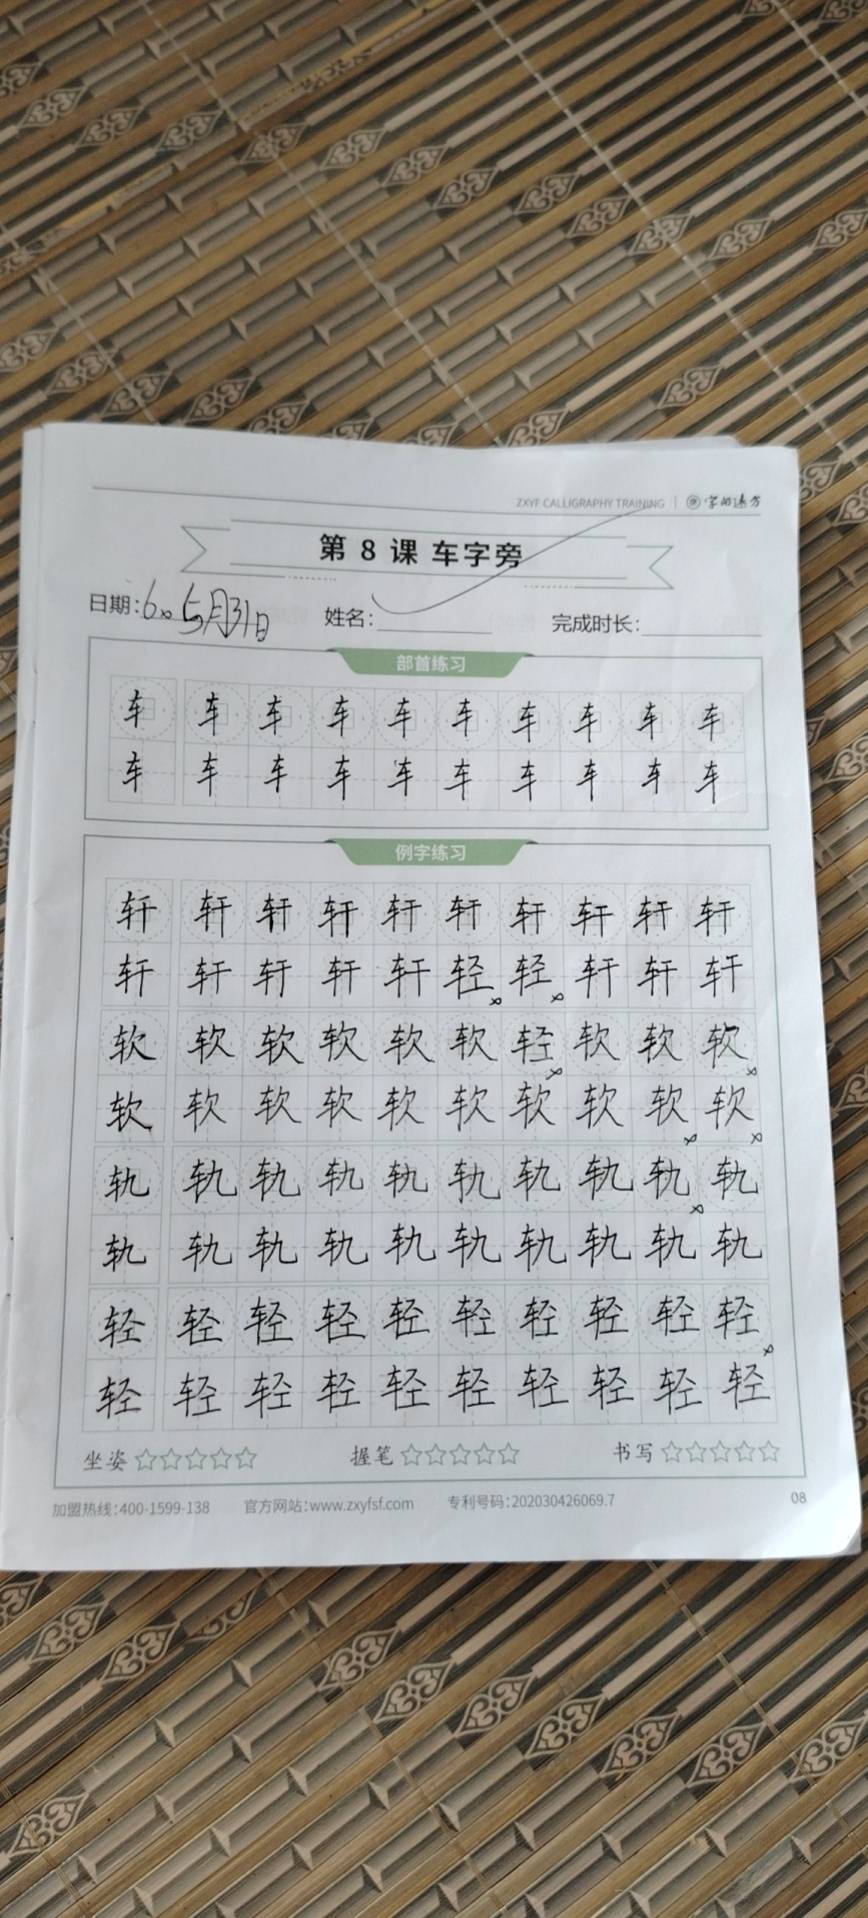 ZXYF CALLIGRAPHY TRAINING | 字的远方
第 8 课 车字旁
日期: 5月31日 姓名: 完成时长:
部首练习
车 车 车 车 车 车 车 车 车 车
车 车 车 车 车 车 车 车 车 车
例字练习
轩 轩 轩 轩 轩 轩 轩 轩 轩 轩
轩 轩 轩 轩 轩 轻 轻 轩 轩 轩
软 软 软 软 软 软 轻 软 软 软
软 软 软 软 软 软 软 软 软 软
轨 轨 轨 轨 轨 轨 轨 轨 轨 轨
轨 轨 轨 轨 轨 轨 轨 轨 轨 轨
轻 轻 轻 轻 轻 轻 轻 轻 轻 轻
轻 轻 轻 轻 轻 轻 轻 轻 轻 轻
坐姿☆☆☆☆☆ 握笔☆☆☆☆☆ 书写☆☆☆☆☆
加盟热线:400-1599-138 官方网站:www.zxyfsf.com 专利号码:202030426069.7 08